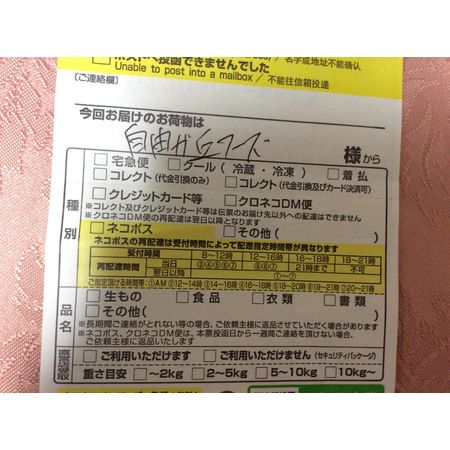 ポストへ投函できませんでした
Unable to post into a mailbox / 不能往信箱投递
名字或地址不能确认
(ご連絡欄)
今回お届けのお荷物は
自由が丘コーズ 様から
種別
□宅急便 □クール(冷蔵・冷凍) □着払
□コレクト(代金引換のみ) □コレクト(代金引換及びカード決済可)
□クレジットカード等 □クロネコDM便
※コレクト及びクレジットカード等は伝票のお届け先以外への配達はできません
※クロネコDM便の再配達は翌日以降となります。
□ネコポス □その他( )
ネコポスの再配達は受付時間によって配達指定時間帯が異なります
受付時間 8〜12時 12〜16時 16〜18時 18〜21時
再配達時間 当日 ③④⑤⑥⑦ ⑥⑦ 21時まで 不可
翌日以降 ①〜⑦
ご指定頂ける時間帯:①AM ②12〜14時 ③14〜16時 ④16〜18時 ⑤18〜20時 ⑥19〜21時 ⑦20〜21時
品名
□生もの □食品 □衣類 □書類
□その他( )
※長期間ご連絡がとれない等の場合、ご依頼主様に返品させていただく場合があります
※ネコポス、クロネコDM便は、本票投函日から一週間ご連絡を頂けない場合、
ご依頼主様に返品いたします
直営店受取
□ご利用いただけます □ご利用いただけません(セキュリティパッケージ)
重さ目安 □〜2kg □2〜5kg □5〜10kg □10kg〜